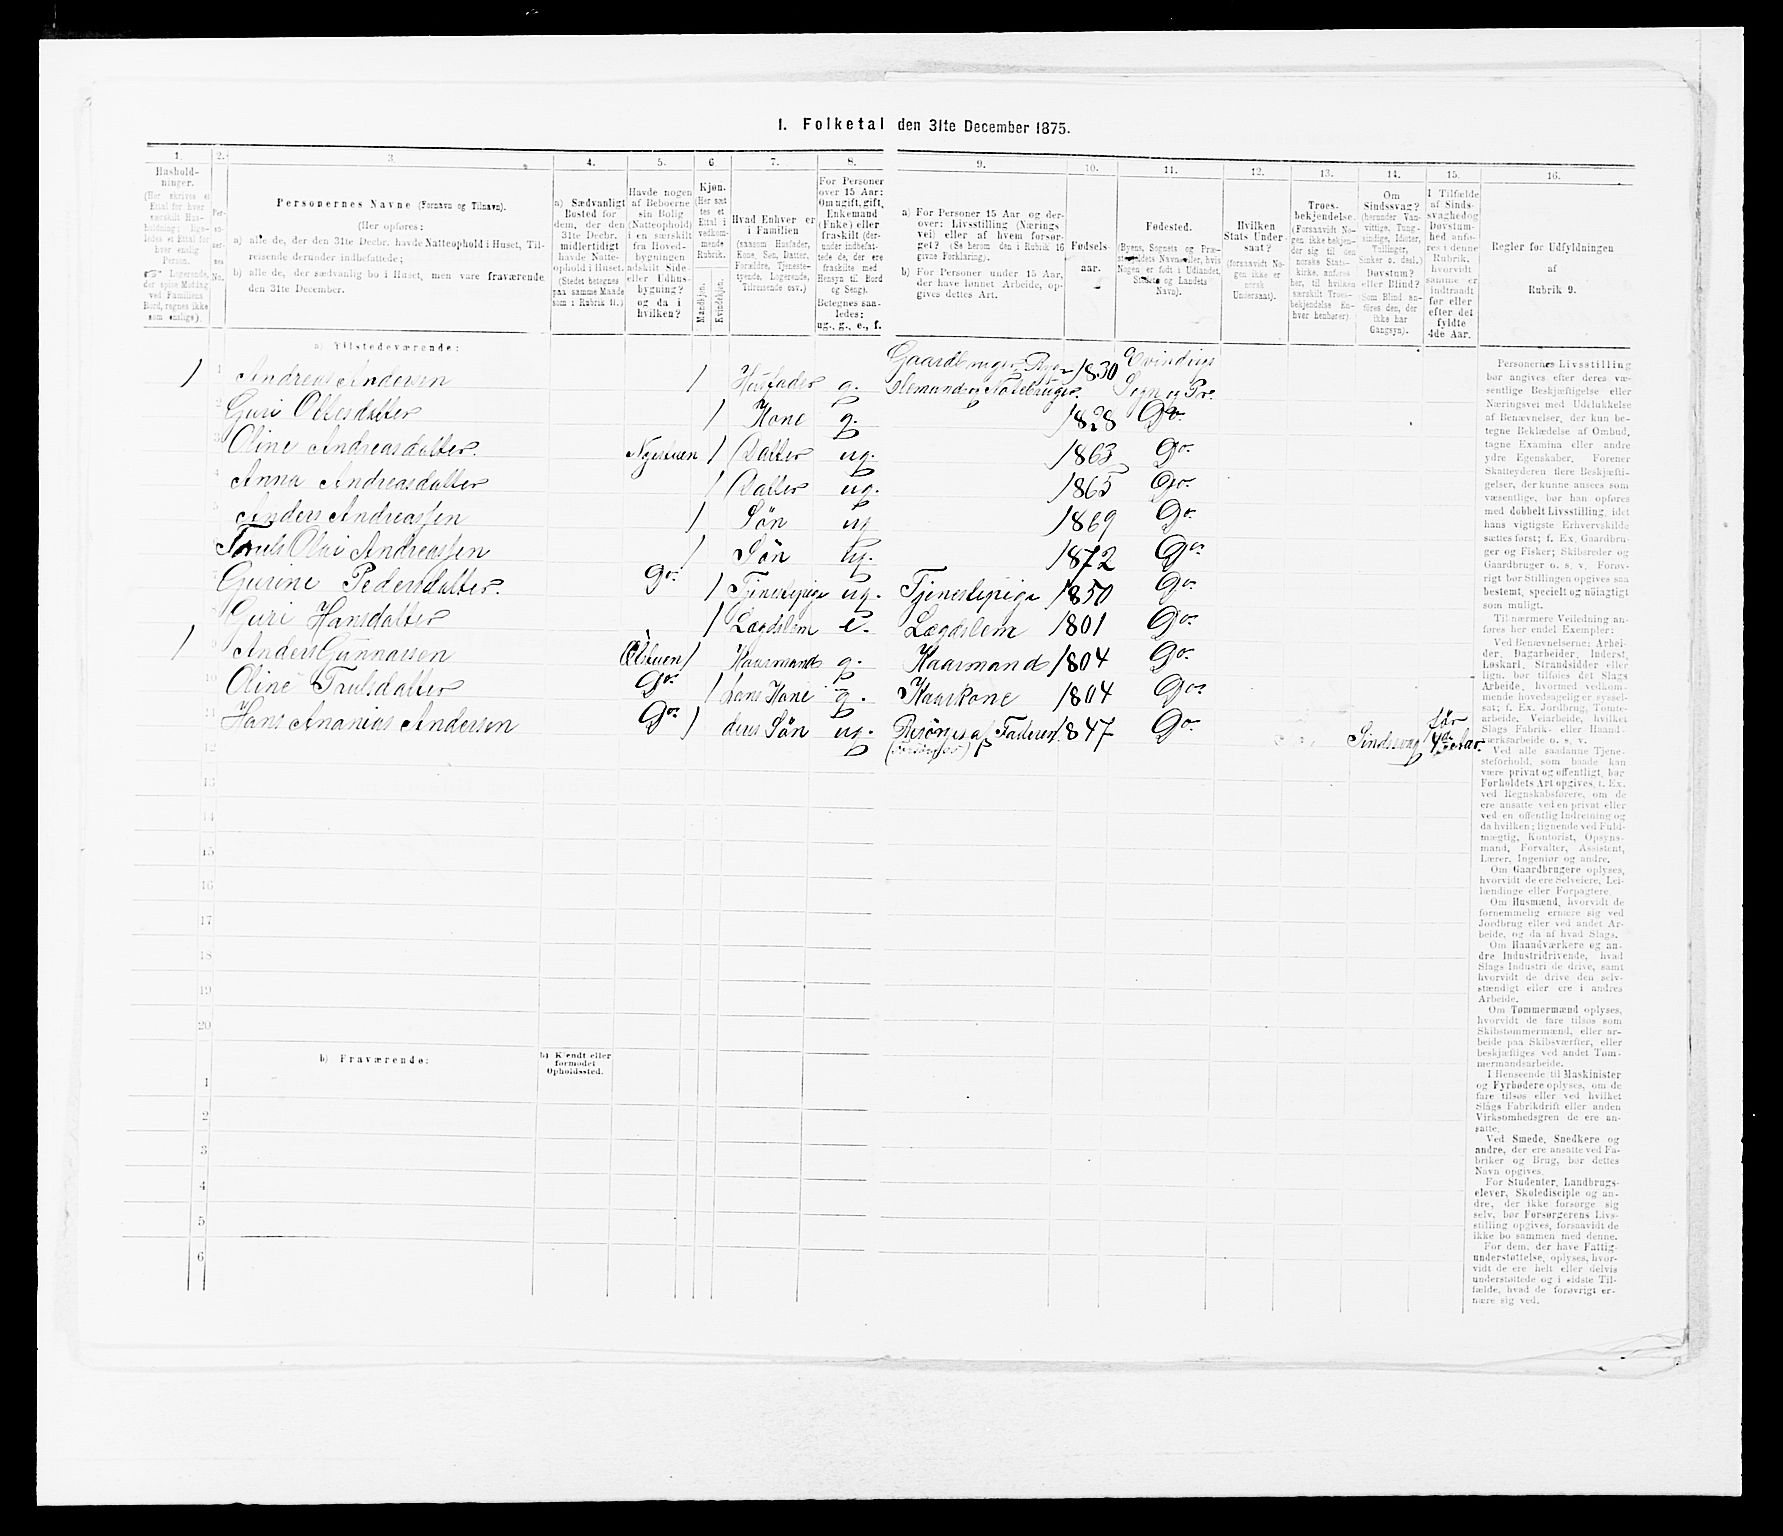 1. Folketal den 31te December 1875.
1. 2. 3. 4. 5. 6. 7. 8. 9. 10. 11. 12. 13. 14. 15. 16.
Hushold-
ninger.
(Her skrives et
Ettal for hver
særskilt Hus-
holdning; lige-
ledes et Ettal for
hver enslig
Person.
Logerende,
der spise Middag
ved Familiens
Bord, regnes ikke
som enslige).
Per-
son-
ner-
nes
No.
Personernes Navne (Fornavn og Tilnavn).
(Her opføres:
a) alle de, der den 31te Decbr. havde Natteophold i Huset, Til-
reisende derunder indbefattede;
b) alle de, der sædvanlig bo i Huset, men vare fraværende
den 31te December.
a) Sædvanligt
Bosted for
dem, der den
31te Decbr.
midlertidigt
havde Natte-
ophold i Huset.
(Stedet betegnes
paa samme Maade
som i Rubrik 11.)
Havde nogen
af Beboerne
sin Bolig
(Natteophold)
i en særskilt
fra Hoved-
bygningen
adskilt Side-
eller Udhus-
bygning?
og da i
hvilken?
Kjøn.
(Her sæt
tes et
Ettal i
vedkom-
mende
Rubrik.
Mandkjøn.
Kvindekjøn.
Hvad Enhver er
i Familien
(saasom Husfader,
Kone, Søn, Datter,
Forældre, Tjeneste-
tjende, Logerende,
Tilreisende osv.)
For Personer
over 15 Aar:
Om ugift, gift,
Enkemand
(Enke) eller
fraskilt (der-
under indbefat-
tede de, der ere
fraskilte med
Hensyn til Bord
og Seng).
Betegnes saa-
ledes:
ug., g., e., f.
a) For Personer 15 Aar og der-
over: Livsstilling (Nærings
vei) eller af hvem forsør-
get? (Se herom den i Rubrik 16
givne Forklaring).
b) For Personer under 15 Aar,
der have lønnet Arbeide, op-
gives dettes Art.
Fødsels-
aar.
Fødested.
(Byens, Sognets og Præ-
stegjeldets Navn eller, hvis
Nogen er født i Udlandet,
Stedets og Landets
Navn).
Hvilken
Stats Under-
saat?
(forsaavidt No-
gen ikke er
norsk
Undersaat).
Troes-
bekjendelse.
(Forsaavidt No-
gen ikke bekjen-
der sig til den
norske Stats-
kirke, anføres
her, til hvilken
særskilt Troes-
bekjendelse En-
hver henhører).
Om
Sindssvag?
(herunder Van-
vittige, Tung-
sindige, Idioter,
Tullinger,
Sinker o. desl.)
Døvstum?
eller Blind?
(Som Blind an-
føres den, der
ikke har
Gangsyn).
I Tilfælde
af Sinds-
svaghed og
Døvstum-
hed anfø-
res i denne
Rubrik,
hvorvidt
samme er
indtraadt
før eller
efter det
fyldte
4de Aar.
Regler for Udfyldningen
af
Rubrik 9.
a) Tilstedeværende:
1 1 Andreas Andersen 1 Husfader g. Gaardbruger, Byg- slemand og Notebruger. 1830 Evindvigs Sogn og Pr.
2 Guri Ottesdatter 1 Kone g. 1828 Do.
3 Oline Andreasdatter. Nystuen 1 Datter ug. 1863 Do.
4 Anna Andreasdatter 1 Datter ug. 1865 Do.
5 Anders Andreassen 1 Søn ug 1869 Do.
Truls Olai Andreassen 1 Søn ug. 1872 Do.
7 Gurine Pedersdatter. Do. 1 Tjenestepige ug. Tjenestepige 1850 Do.
Guri Hansdatter 1 Lægdslem e. Lægdslem 1801 Do.
1 9 Anders Gunnarsen Ølstuen 1 Kaarmand g. Kaarmand 1804 Do.
10 Oline Trulsdatter Do. 1 hans Kone g. Kaarkone 1804 Do.
11 Hans Ananias Andersen Do. 1 deres Søn ug. Forsørges af Faderen 1847 Do. Sindssvag før 4de Aar.
12
13
14
15
16
17
18
19
20
b) Fraværende:
b) Kjendt eller
formodet
Opholdssted.
1
2
3
4
5
6
Personernes Livsstilling
bør angives efter deres væ-
sentlige Beskjæftigelse eller
Næringsvei med Udelukkelse
af Benævnelser, der kun be-
tegne Beklædelse af Ombud,
tagne Examina eller andre
ydre Egenskaber. Forener
Skatteyderen flere Beskjæfti-
gelser, der kunne ansees som
væsentlige, bør han opføres
med dobbelt Livsstilling, idet
hans vigtigste Erhvervskilde
sættes først; f. Ex. Gaardbru-
ger og Fisker; Skibsreder og
Gaardbruger o. s. v. Forøv-
rigt bør Stillingen opgives saa
bestemt, specielt og nøiagtigt
som muligt.
Til nærmere Veiledning an-
føres her endel Exempler:
Ved Benævnelserne: Arbei-
der, Dagarbeider, Inderst,
Løskarl, Strandsidder eller
lign. bør tilføies det Slags
Arbeide, hvormed vedkom-
mende hovedsagelig er syssel-
sat; f. Ex. Jordbrug, Tomte-
arbeide, Veiarbeide, hvilket
Slags Fabrik- eller Haand-
værksarbeide o. s. v.
Ved alle saadanne Tjene-
steforhold, som baade kan
være privat og offentligt, bør
Forholdets Art opgives, t. Ex.
ved Regnskabsførere, om de
ere ansatte ved en privat eller
ved en offentlig Indretning og
da hvilken; lignende ved Fuld-
mægtig, Kontorist, Opsyns-
mand, Forvalter, Assistent,
Lærer, Ingeniør og andre.
Om Gaardbrugere oplyses,
hvorvidt de ere Selveiere, Lei-
lændinge eller Forpagtere.
Om Husmænd, hvorvidt de
fornemmelig ernære sig ved
Jordbrug eller ved andet Ar-
beide, og da af hvad Slags.
Om Haandværkere og an-
dre Industridrivende, hvad
Slags Industri de drive, samt
hvorvidt de drive den selv-
stændigt eller ere i andres
Arbeide.
Om Tømmermænd oplyses,
hvorvidt de fare tilsøs som
Skibstømmermænd, eller ar-
beide paa Skibsværfter, eller
beskjæftiges ved andet Tøm-
mermandsarbeide.
I Henseende til Maskinister
og Fyrbødere oplyses, om de
fare tilsøs eller ved hvilket
Slags Fabrikdrift eller anden
Virksomhedsgren de ere an-
satte.
Ved Smede, Snedkere og
andre, der ere ansatte ved Fa-
briker og Brug, bør dettes
Navn opgives.
For Studenter, Landbrugs-
elever, Skoledisciple og an-
dre, der ikke forsørge sig
selv, bør Forsørgerens Livs-
stilling opgives, forsaavidt de
ikke bo sammen med denne.
For dem, der have Fattig-
understøttelse, oplyses, hvor-
vidt de ere helt eller delvis
understøttede og i sidste Til-
fælde, hvad de forøvrigt er-
nære sig ved.